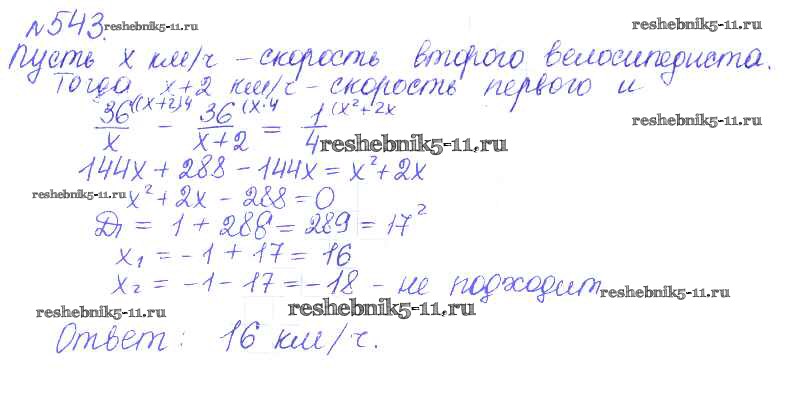 №543. reshebnik5-11.ru reshebnik5-11.ru
Пусть x км/ч - скорость второго велосипедиста.
Тогда x+2 км/ч - скорость первого и
36/x ((x+2)4 - 36/(x+2) (x·4 = 1/4 (x²+2x reshebnik5-11.ru
reshebnik5-11.ru
144x + 288 - 144x = x² + 2x
reshebnik5-11.ru x² + 2x - 288 = 0
D₁ = 1 + 288 = 289 = 17²
x₁ = -1 + 17 = 16
x₂ = -1 - 17 = -18 - не подходит reshebnik5-11.ru
reshebnik5-11.ru reshebnik5-11.ru
Ответ: 16 км/ч.